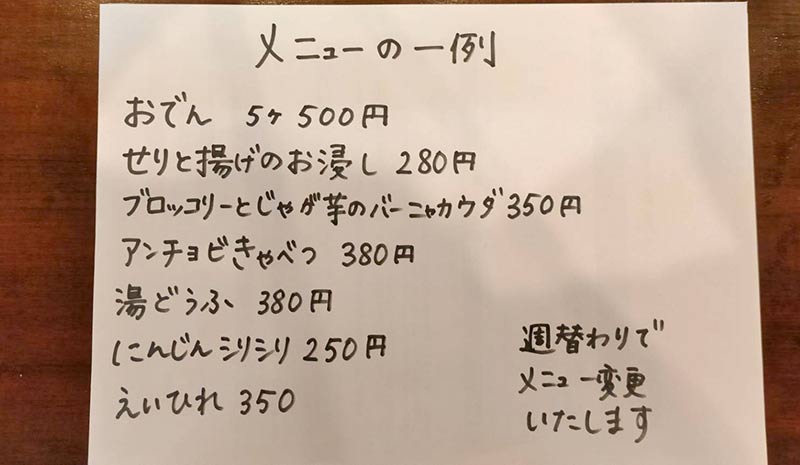 メニューの一例
おでん 5ケ 500円
せりと揚げのお浸し 280円
ブロッコリーとじゃが芋のバーニャカウダ 350円
アンチョビきゃべつ 380円
湯どうふ 380円
にんじんシリシリ 250円
えいひれ 350
週替わりで
メニュー変更
いたします